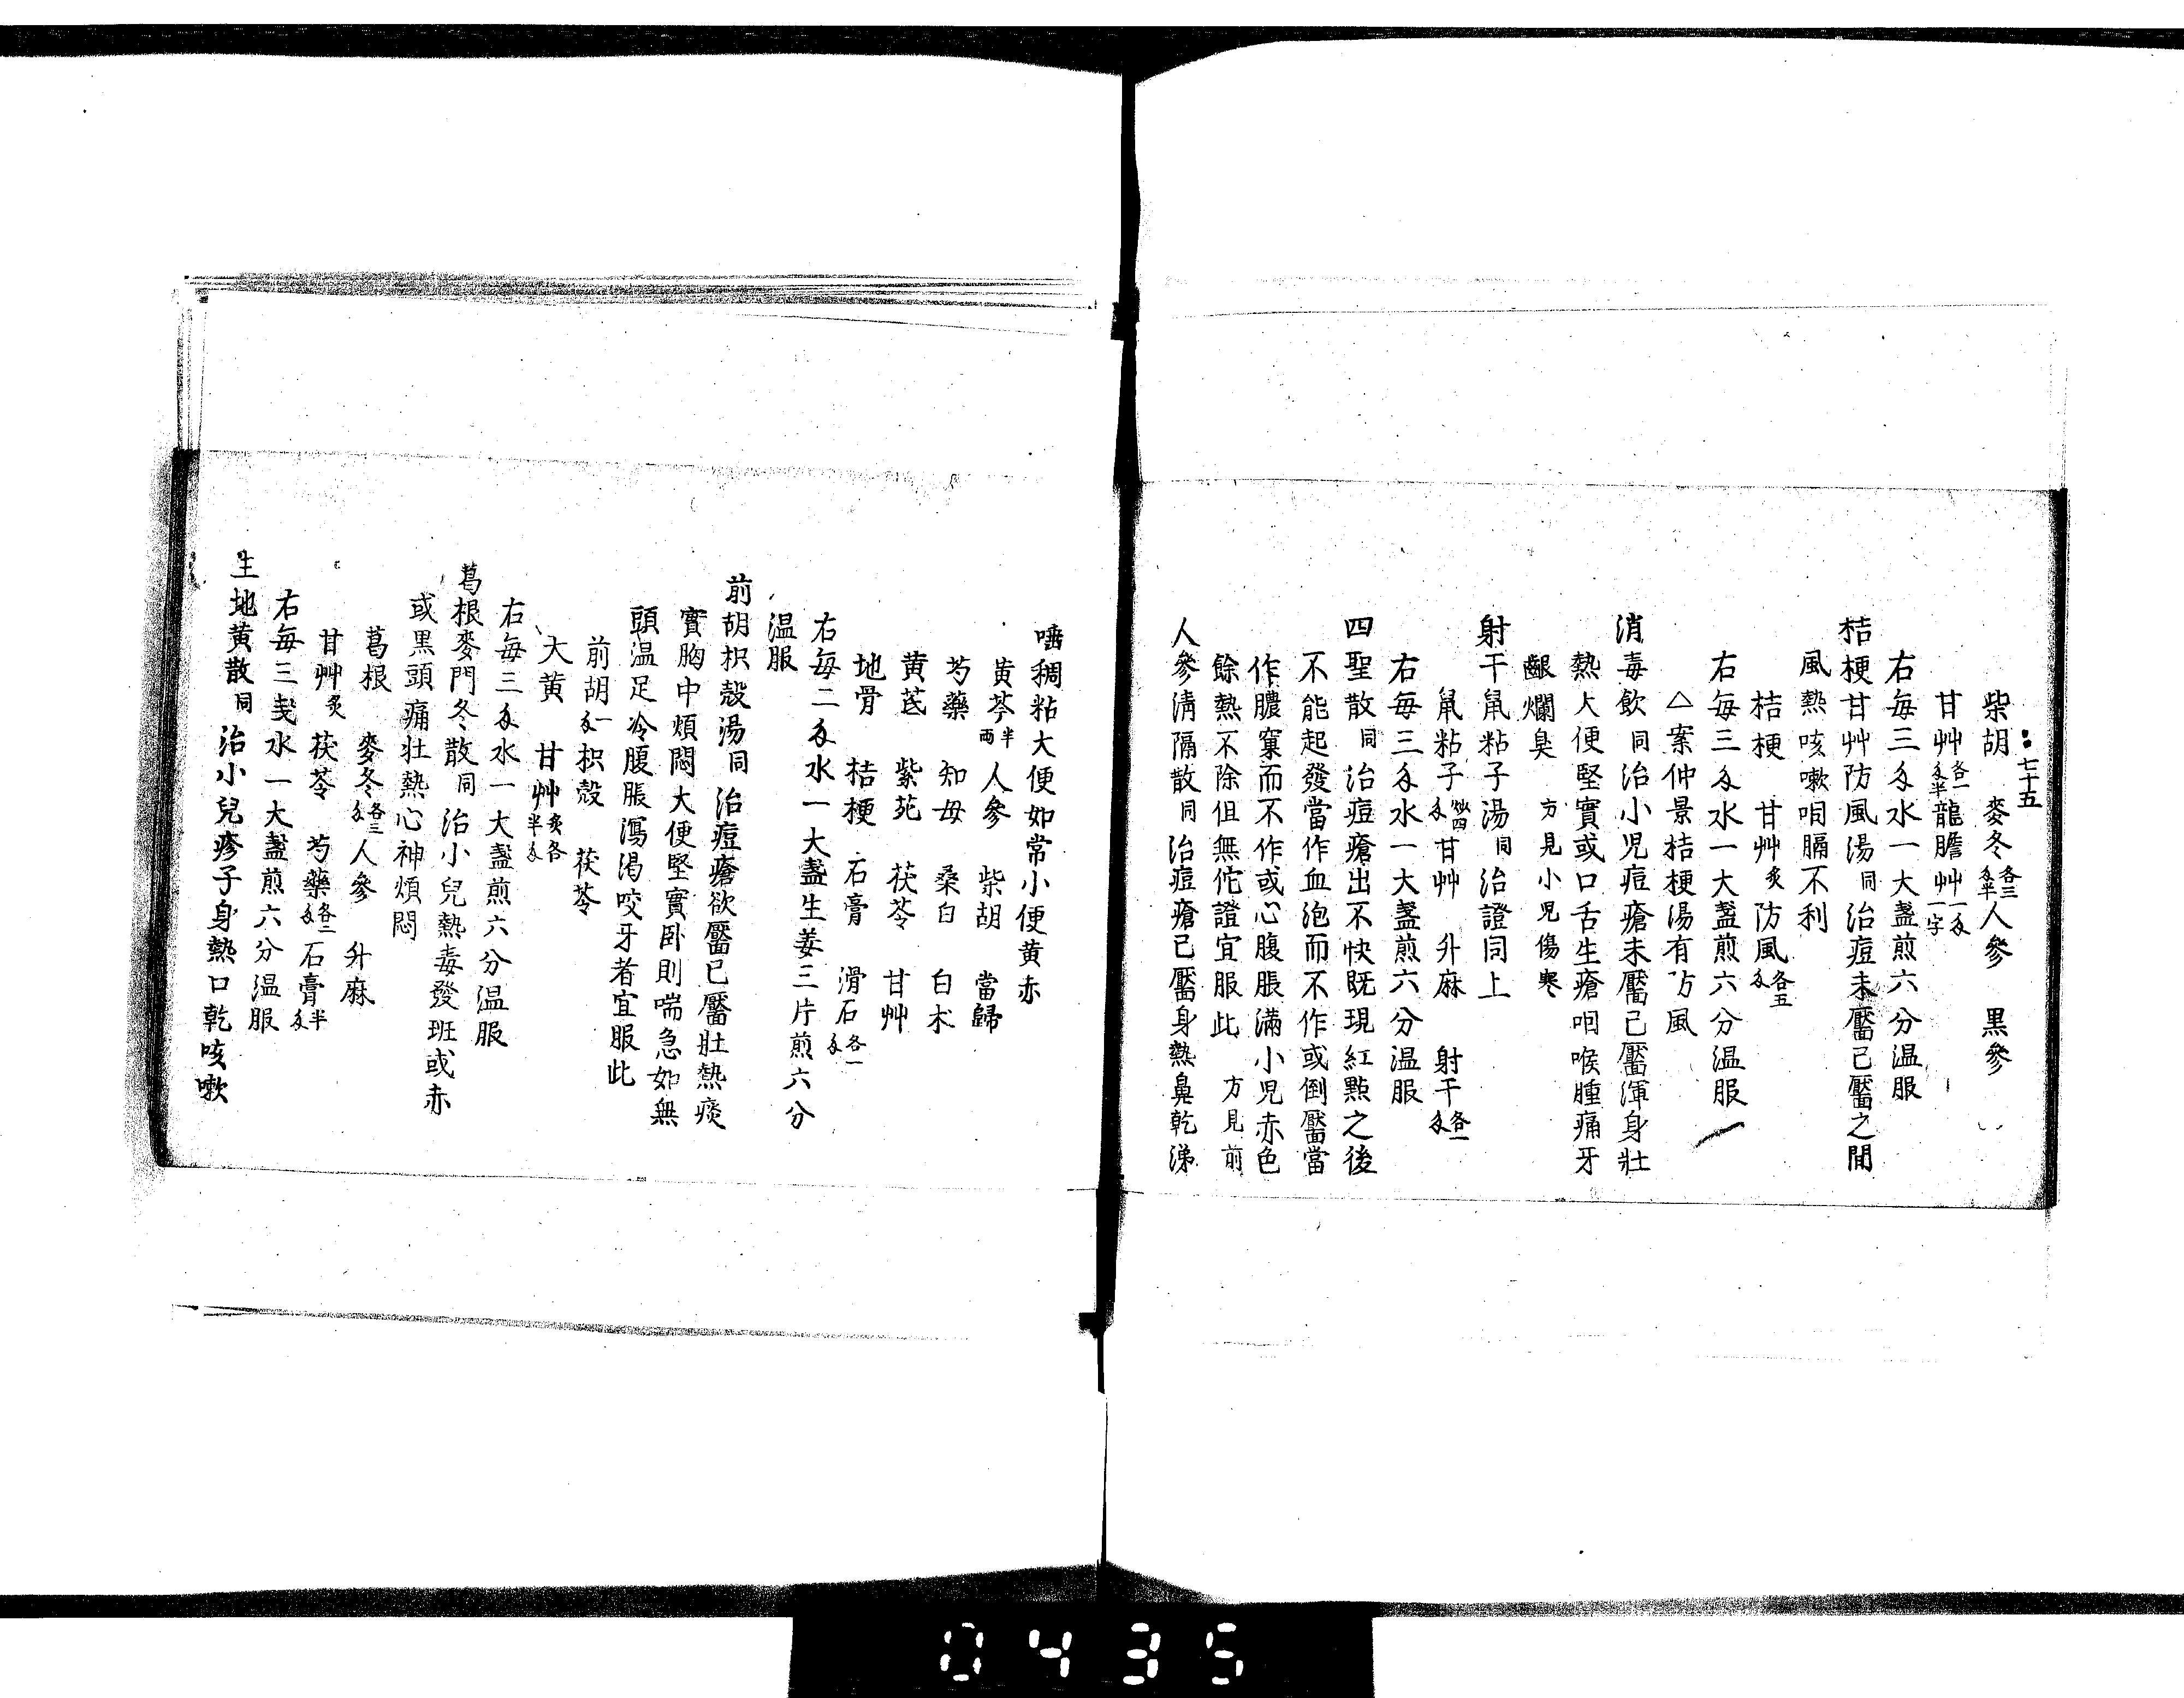 七十五
柴胡 麥冬各三戔半 人參 黒參
甘艸各一戔半 龍膽艸一戔一字
右毎三戔水一大盞煎六分温服
桔梗甘艸防風湯同 治痘未靨已靨之間
風熱咳嗽咽膈不利
桔梗 甘艸炙 防風各五戔
右毎三戔水一大盞煎六分温服
△案仲景桔梗湯有防風
消毒飲同 治小児痘瘡未靨已靨渾身壯
熱大便堅實或口舌生瘡咽喉腫痛牙
齦爛臭 方見小児傷寒
射干鼠粘子湯同 治證同上
鼠粘子炒四戔 甘艸 升麻 射干各一戔
右毎三戔水一大盞煎六分温服
四聖散同 治痘瘡出不快既現紅點之後
不能起發當作血泡而不作或倒靨當
作膿窠而不作或心腹脹滿小児赤色
餘熱不除但無佗證宜服此 方見前
人參清隔散同 治痘瘡已靨身熱鼻乾涕
唾稠粘大便如常小便黄赤
黄芩半兩 人參 柴胡 當歸
芍藥 知毋 桑白 白朮
黄芪 紫菀 茯苓 甘艸
地骨 桔梗 石膏 滑石各一戔
右毎二戔水一大盞生姜三片煎六分
温服
前胡枳殻湯同 治痘瘡欲靨已靨壯熱痰
實胸中煩悶大便堅實卧則喘急如無
頭温足冷腹脹瀉渇咬牙者宜服此
前胡一戔 枳殻 茯苓
大黄 甘艸炙各半戔
右毎三戔水一大盞煎六分温服
葛根麥門冬散同 治小兒熱毒發班或赤
或黒頭痛壯熱心神煩悶
葛根 麥冬各三戔 人參 升麻
甘艸炙 茯苓 芍藥各二戔 石膏半戔
右毎三戔水一大盞煎六分温服
生地黄散同 治小兒疹子身熱口乾咳嗽
0435